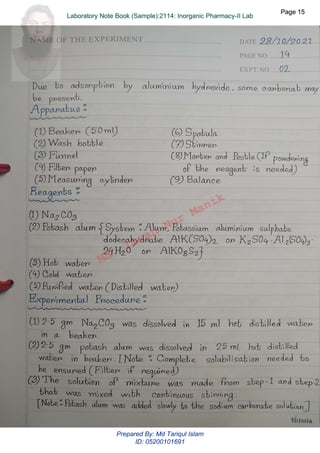 Laboratory Note Book (Sample):2114: Inorganic Pharmacy-II Lab
Page 15
NAME OF THE EXPERIMENT
DATE 28/10/2021
PAGE NO 14
EXPT NO 02
Due to adsorption by aluminium hydroxide, some carbonat may
be present.
Apparatus :
(1) Beaker (50ml)
(2) Wash bottle
(3) Funnel
(4) Filter paper
(5) Measuring cylinder
(6) Spatula
(7) Stirrer
(8) Mortar and Pestle (IF powdering
of the reagent is needed)
(9) Balance
Reagents :
(1) Na2CO3
(2) Potash alum { System : Alum, Potassium aluminium sulphate
dodecahydrate AlK(SO4)2 or K2SO4 · Al2(SO4)3 ·
24H2O or AlKO8S2}
(3) Hot water
(4) Cold water
(5) Purified water (Distilled water)
Nur Manik
Experimental Procedure :
(1) 2.5 gm Na2CO3 was dissolved in 15 ml hot distilled water
in a beaker.
(2) 2.5 gm potash alum was dissolved in 25 ml hot distilled
water in beaker. [Note : Complete solubilisation needed to
be ensured (Filter if required)
(3) The solution of mixture was made from step-1 and step-2
that was mixed with continuous stirring.
[Note: Potash alum was added slowly to the sodium carbonate solution]
Prepared By: Md Tariqul Islam
ID: 05200101691